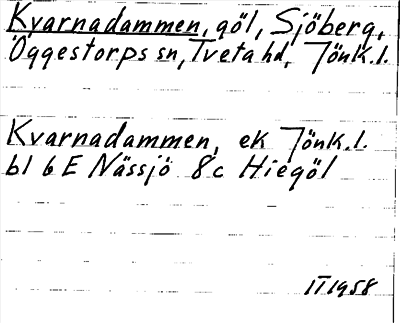 Kvarnadammen, göl, Sjöberg,
Öggestorps sn, Tveta hd, Jönk.l.
Kvarnadammen, ek Jönk.l.
bl 6 E Nässjö 8c Hiegöl
II 1958